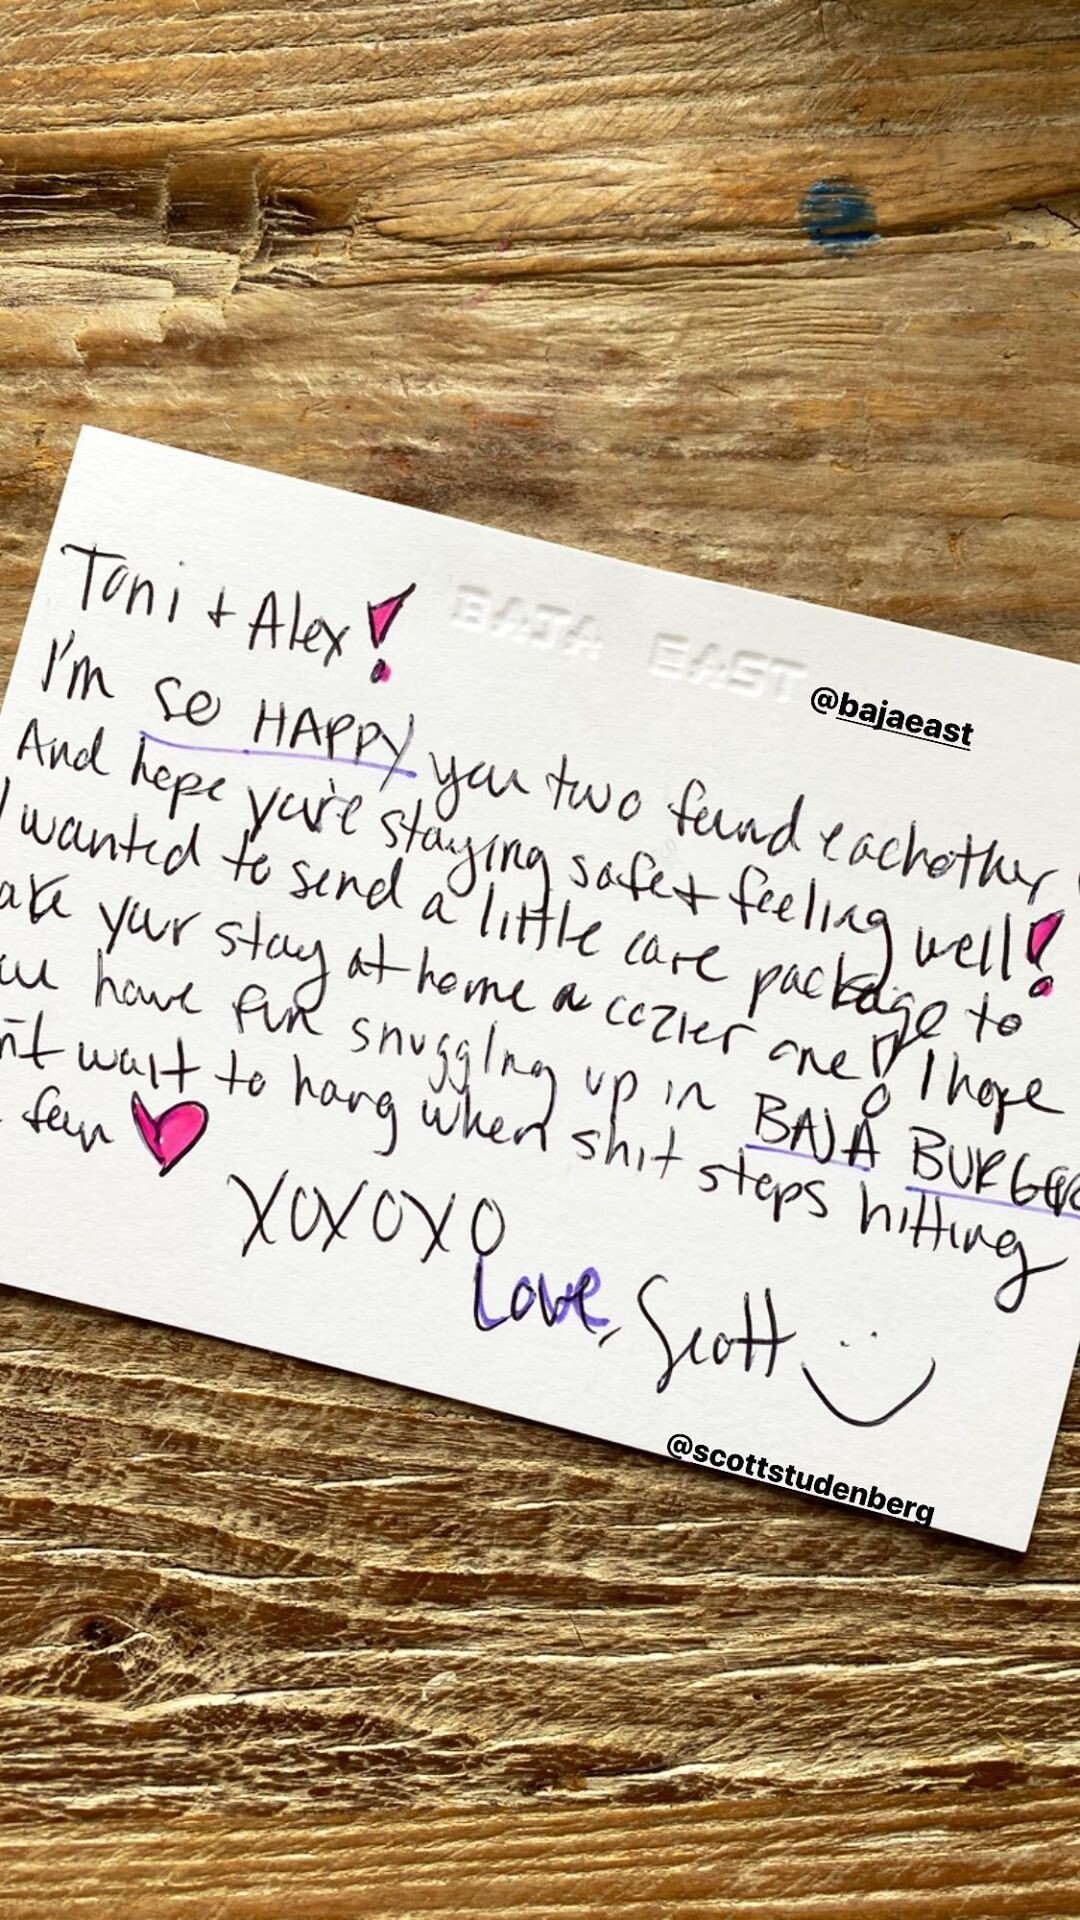 BAJA EAST
Toni + Alex!
@bajaeast
I'm so HAPPY you two found eachother
And hope you're staying safe + feeling well!
I wanted to send a little care package to
ake your stay at home a cozier one! I hope
ou have fun snuggling up in BAJA BURGER
n't wait to hang when shit stops hitting
fan
XOXOXO
Love, Scott
@scottstudenberg